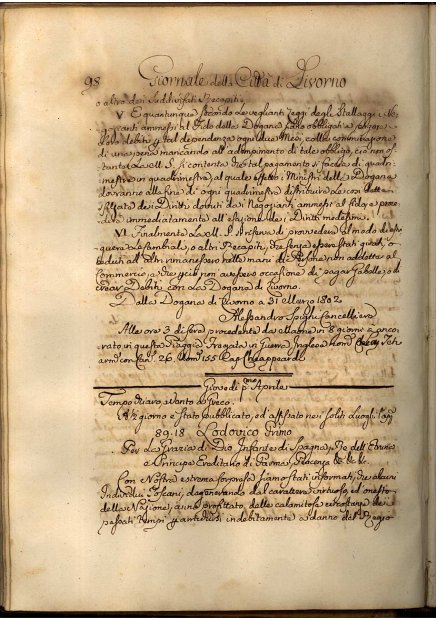 98 Giornale della Città di Livorno
o altro dei suddivisati Recapiti.
V. E quantunque secondo le veglianti Leggi degli Stallaggi i Ne-
=canti ammessi al fido della Dogana sieno obbligati a pagare
i loro debiti di tal dependenza ogni due Mesi, colla comminazione
di una pena mancando all'adempimento di tale obbligo, ciò non os-
tante la M. S. si contenta che tal pagamento si faccia di quadri-
mestre in quadrimestre, al quale effetto i Ministri della Dogana
dovranno alla fine di ogni quadrimestre distribuire le con
dei Diritti dovuti dai Negozianti ammessi al fido, e proce-
dere immediatamente all'esazione dei Diritti medesimi.
VI. Finalmente La M. S. si riserva di provvedere al modo di es
le Cambiali, o altri Recapiti, che senza essere stati
dagli altri rimanessero nelle mani di Persone non addette al
Commercio, e che perciò non avessero occasione di pagar Gabelle, o di
crear Debiti con La Dogana di Livorno.
Dalla Dogana di Livorno a 31 Marzo 1802
Alessandro Cancelliere
Alle ore 3 di sera procedente da Maone in 8 giorni è anco-
rato in questa Piaggia Fregata in Guerra Inglese nom.
arm.ta con Can.i 26. Uom.i 155 Cap.
Giovedì p.mo Aprile
Tempo vario, e Vento
A ½ giorno è stato pubblicato, ed affissato nei soliti Luoghi
89.18 Lodovico Primo
Per La Grazia di Dio Infante di Spagna, Re dell'Etruria
e Principe Ereditario di Parma, Piacenza &c. &c. &c.
Con Nostra estrema sorpresa siamo stati informati, che alcuni
Individui Toscani, degenerando dal carattere virtuoso, ed onesto
della Nazione, hanno profittato, delle calamitose circostanze dei
passati tempi per arricchirsi indebitamente a danno del Regio